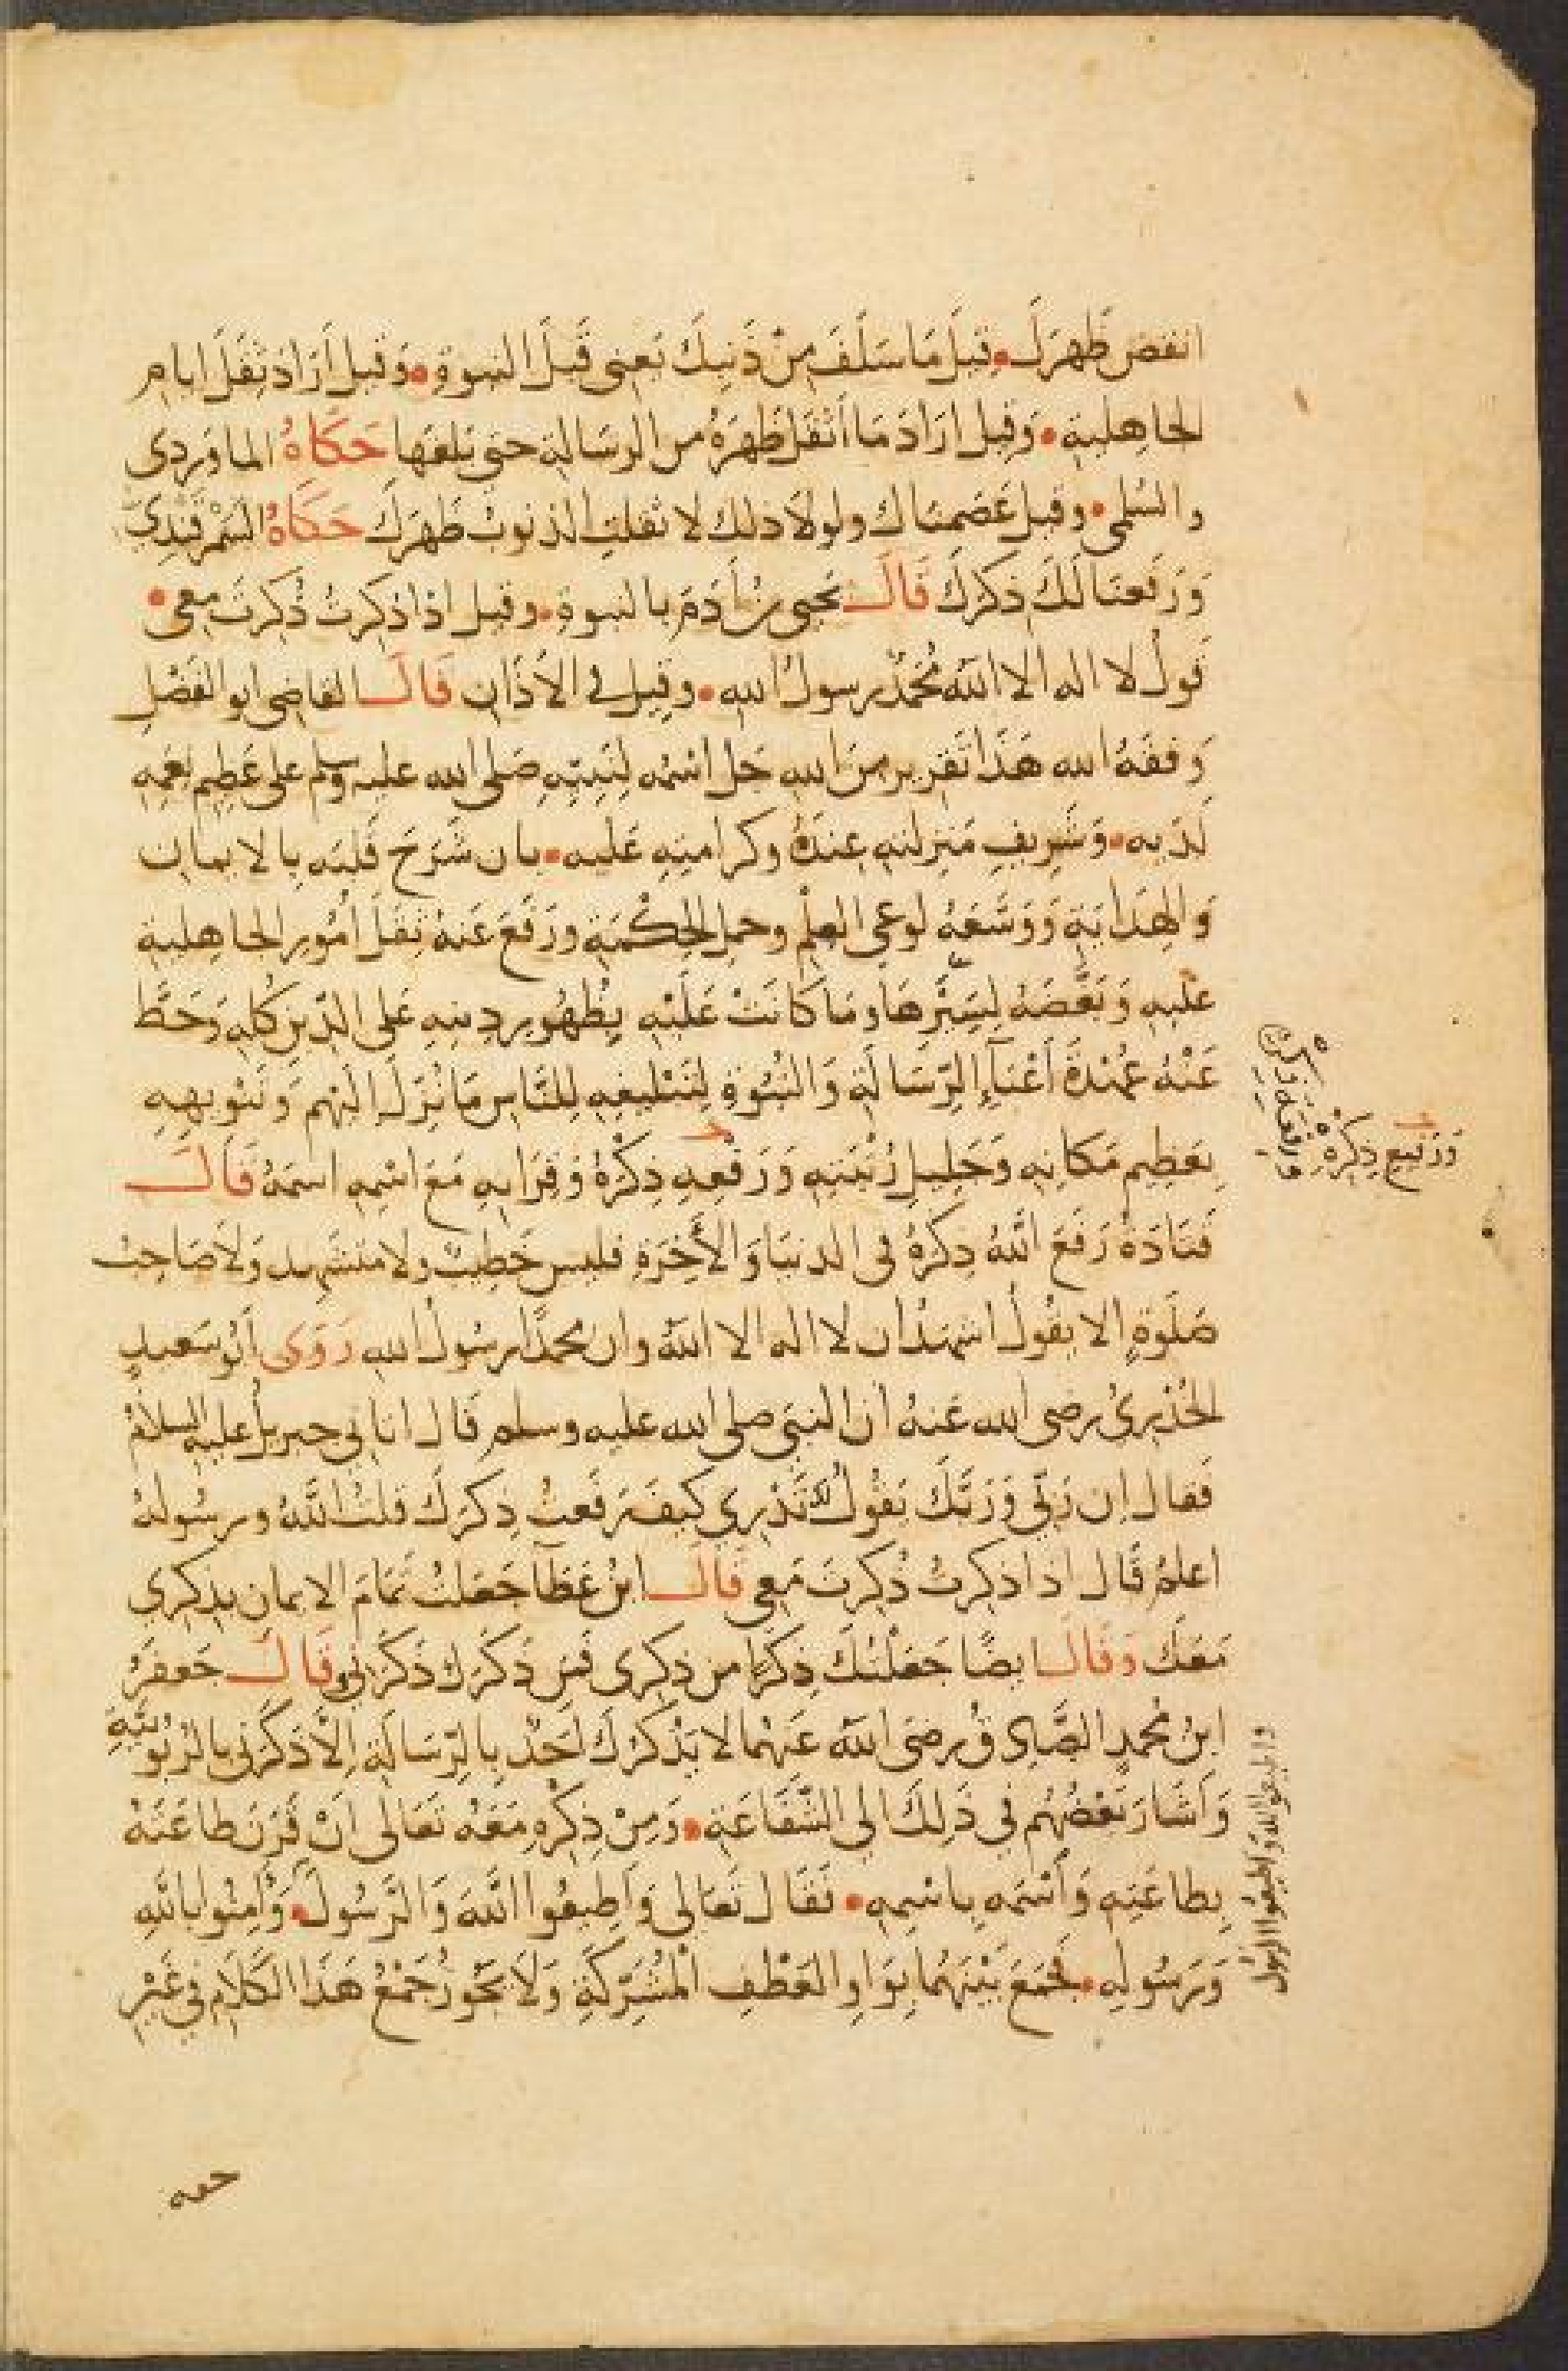 انقض ظهرك • قيل ما سلف من ذنبك يعني قبل النبوة • وقيل أراد ثقل ايام
الجاهلية • وقيل اراد ما أثقل ظهره من الرسالة حتى بلغها حكاه الماوردي
والسلمى • وقيل عصمناك ولولا ذلك لاثقلت الذنوب ظهرك حكاه السمرقندي
ورفعنا لك ذكرك قال يحيى بن آدم بالنبوة • وقيل اذا ذكرت ذكرت معي •
قول لا اله الا الله محمد رسول الله • وقيل في الأذان قال القاضي ابو الفضل
وفقه الله هذا تقرير من الله جل اسمه لنبيه صلى الله عليه وسلم على عظيم نعمه
لديه • وشريف منزلته عنده وكرامته عليه • بان شرح قلبه بالايمان
والهداية ووسعه لوعي العلم وحمل الحكمة ورفع عنه ثقل أمور الجاهلية
عليه وبغضه لسيرها وما كانت عليه بظهور دينه على الدين كله وحط
عنه عهدة أعباء الرسالة والنبوة لتبليغه للناس ما نزل إليهم وتنويهه
بعظيم مكانه وجليل رتبته ورفعه ذكره وقرانه مع اسمه اسمه قال
قتادة رفع الله ذكره في الدنيا والأخرة فليس خطيب ولا متشهد ولا صاحب
صلوة الا يقول اشهد ان لا اله الا الله وان محمدا رسول الله روى أبو سعيد
الخدري رضى الله عنه أن النبي صلى الله عليه وسلم قال اتاني جبريل عليه السلام
فقال إن ربي وربك يقول تدري كيف رفعت ذكرك قلت الله ورسوله
اعلم قال اذا ذكرت ذكرت معي قال ابن عطآ جعلت تمام الايمان بذكري
معك وقال ايضا جعلتك ذكرا من ذكرى فمن ذكرك ذكرني وقال جعفر
ابن محمد الصادق رضى الله عنهما لا يذكرك أحد بالرسالة إلا ذكرني بالربوبية
وأشار بعضهم في ذلك الي الشفاعة • ومن ذكره معه تعالى أن قرن طاعته
بطاعته وأسمه باسمه • فقال تعالى وأطيعوا الله والرسول • وآمنوا بالله
ورسوله • فجمع بينهما بواو العطف المشركة ولا يجوز جمع هذا الكلام في غير
ورفيع ذكره
واطيعوا الله واطيعوا الرسول
حقه